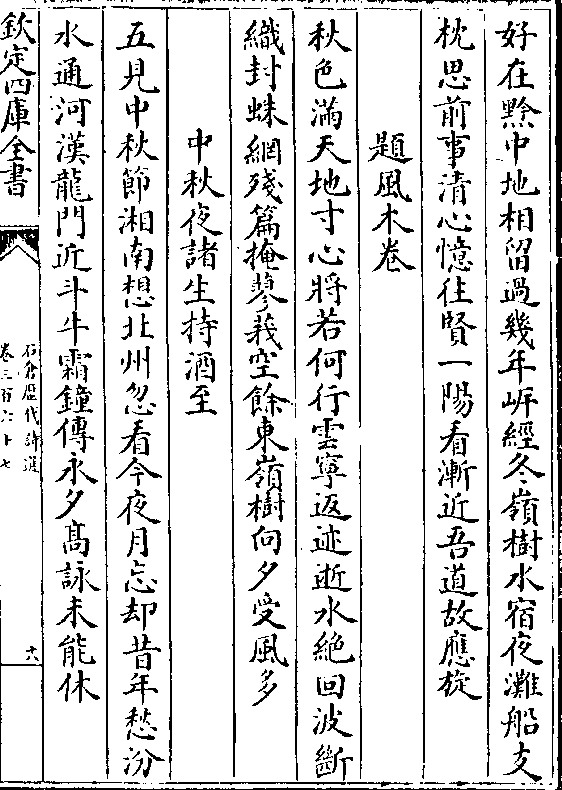 好在黔中地相留過幾年岍經冬嶺樹水宿夜灘船支
枕思前事清心憶往賢一陽看漸近吾道故應旋
題風木卷
秋色滿天地寸心將若何行雲寧返迹逝水絶回波斷
織封蛛網殘篇掩蓼莪空餘東嶺樹向夕受風多
中秋夜諸生持酒至
五見中秋節湘南想北州忽看今夜月忘却昔年愁汾
水通河漢龍門近斗牛霜鐘傳永夕髙詠未能休
欽定四庫全書
石倉歴代詩選
卷三百六十七
六